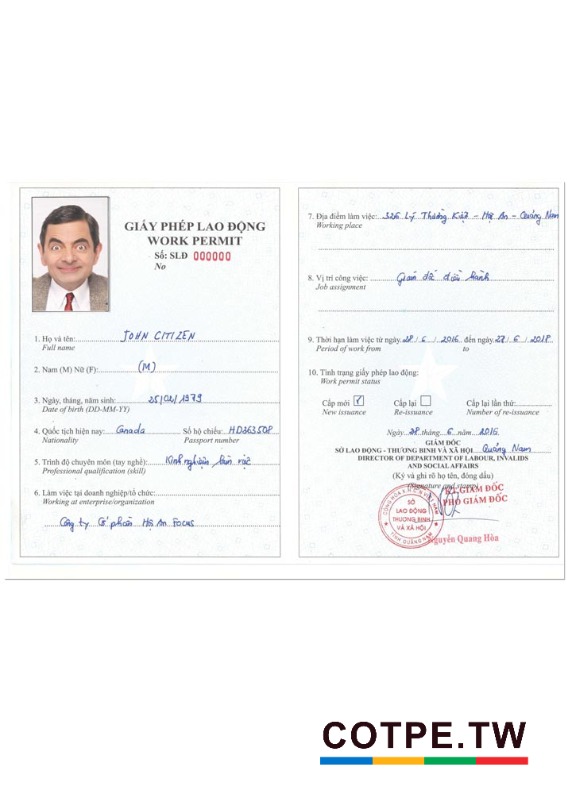 GIẤY PHÉP LAO ĐỘNG
WORK PERMIT
Số: SLĐ 000000
No
1. Họ và tên: JOHN CITIZEN
Full name
2. Nam (M) Nữ (F): (M)
3. Ngày, tháng, năm sinh: 25/02/1979
Date of birth (DD-MM-YY)
4. Quốc tịch hiện nay: Canada Số hộ chiếu: HD263508
Nationality Passport number
5. Trình độ chuyên môn (tay nghề): Kinh nghiệm làm việc
Professional qualification (skill)
6. Làm việc tại doanh nghiệp/tổ chức:
Working at enterprise/organization
Công ty Cổ phần Hội An Focus
7. Địa điểm làm việc: 326 Lý Thường Kiệt - Hội An - Quảng Nam
Working place
8. Vị trí công việc: Giám đốc điều hành
Job assignment
9. Thời hạn làm việc từ ngày 28/6/2016 đến ngày 27/6/2018
Period of work from to
10. Tình trạng giấy phép lao động:
Work permit status
Cấp mới ☑ Cấp lại ☐ Cấp lại lần thứ:
New issuance Re-issuance Number of re-issuance
Ngày 28 tháng 6 năm 2016
GIÁM ĐỐC
SỞ LAO ĐỘNG - THƯƠNG BINH VÀ XÃ HỘI Quảng Nam
DIRECTOR OF DEPARTMENT OF LABOUR, INVALIDS
AND SOCIAL AFFAIRS
(Ký và ghi rõ họ tên, đóng dấu)
GIÁM ĐỐC
PHÓ GIÁM ĐỐC
SỞ
LAO ĐỘNG
THƯƠNG BINH
VÀ XÃ HỘI
TỈNH QUẢNG NAM
Nguyễn Quang Hòa
COTPE.TW